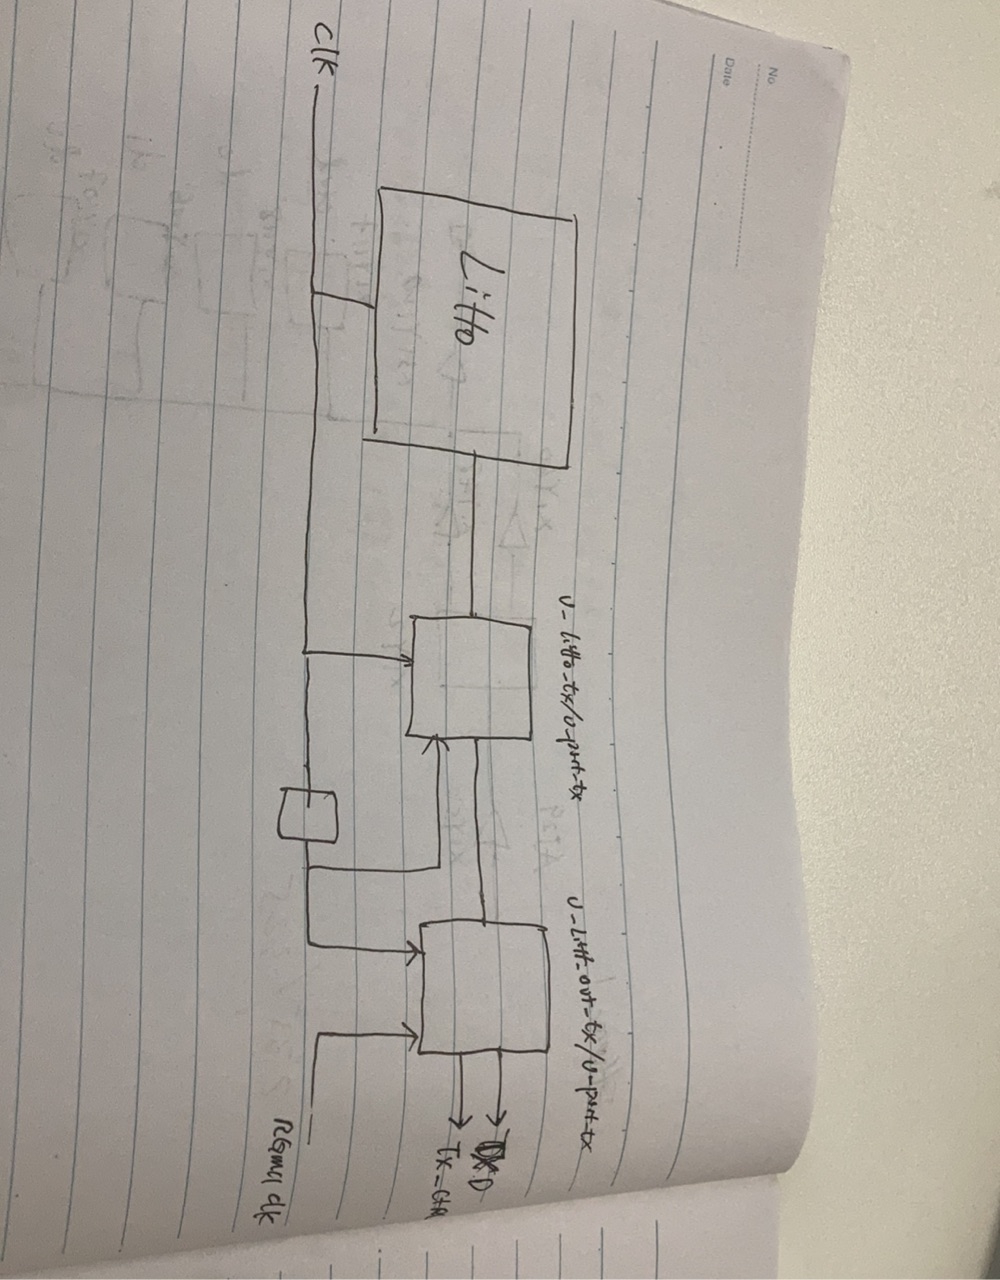 No
Date
U-Litto-tx/U-port-tx
U-Litt-out-tx/U-port-tx
Litto
TXD
Tx-Ctrl
Clk
RGmii clk